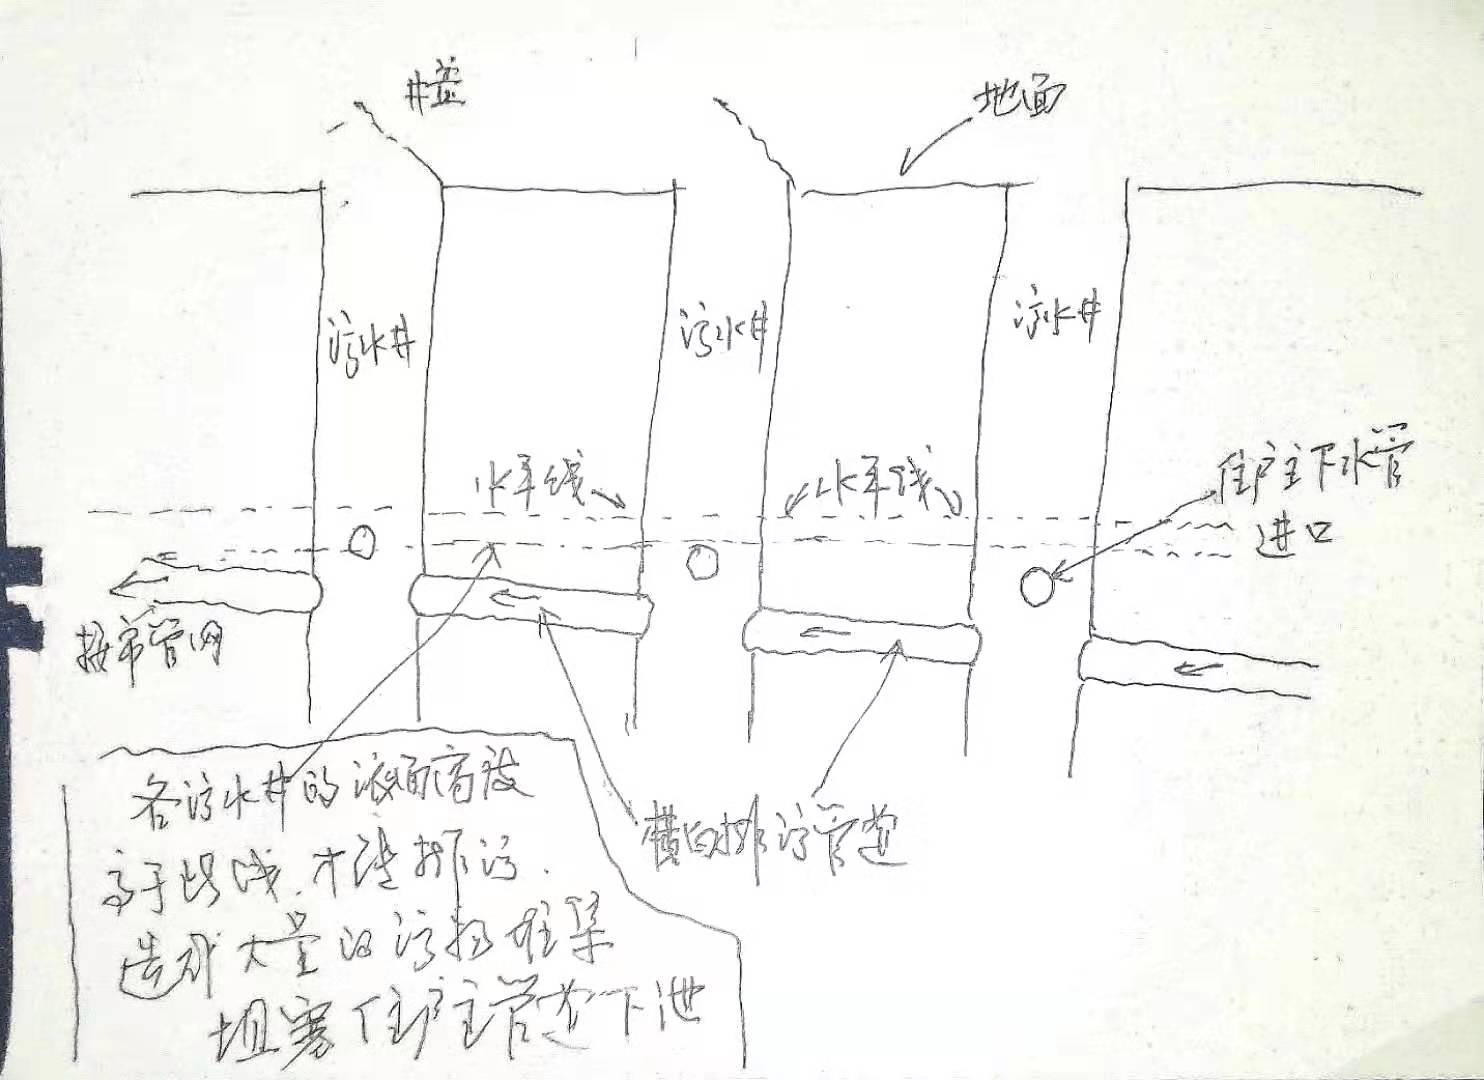 井盖
地面
污水井
污水井
污水井
水平线
水平线
住户主下水管
进口
接市管网
各污水井的液面高度
高于此线,才能排污.
造成大量的污物堆集
阻塞住户主管道下泄
横向排污管道